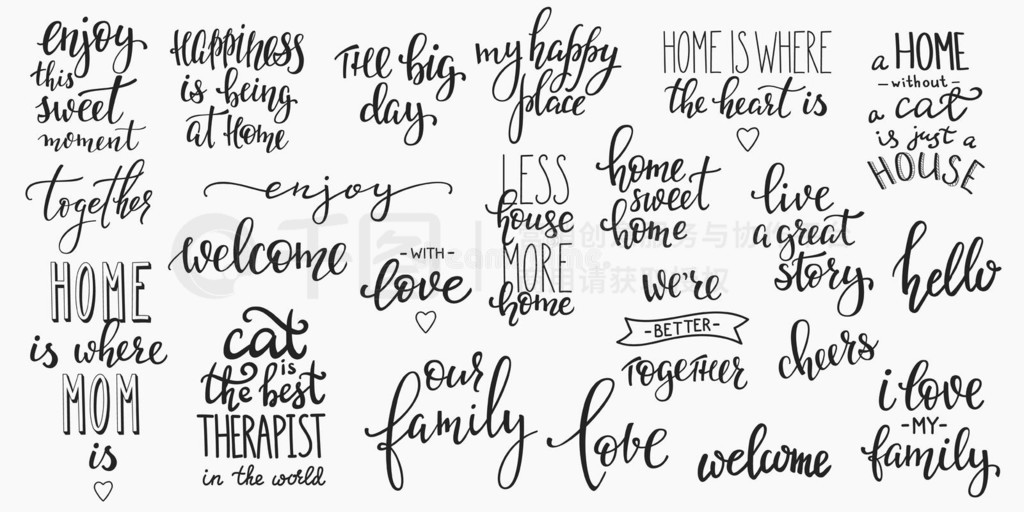 enjoy
this
sweet
moment
HAPPINESS
is being
at Home
THE big
day
my happy
place
HOME IS WHERE
the heart is
a HOME
-without-
a cat
is just a
HOUSE
together
enjoy
LESS
house
MORE
home
home
sweet
home
live
a great
story
welcome
-WITH-
love
we're
-BETTER-
TOGETHER
hello
HOME
is where
MOM
is
cat
is
the best
THERAPIST
in the world
our
family
love
cheers
welcome
i love
-MY-
family